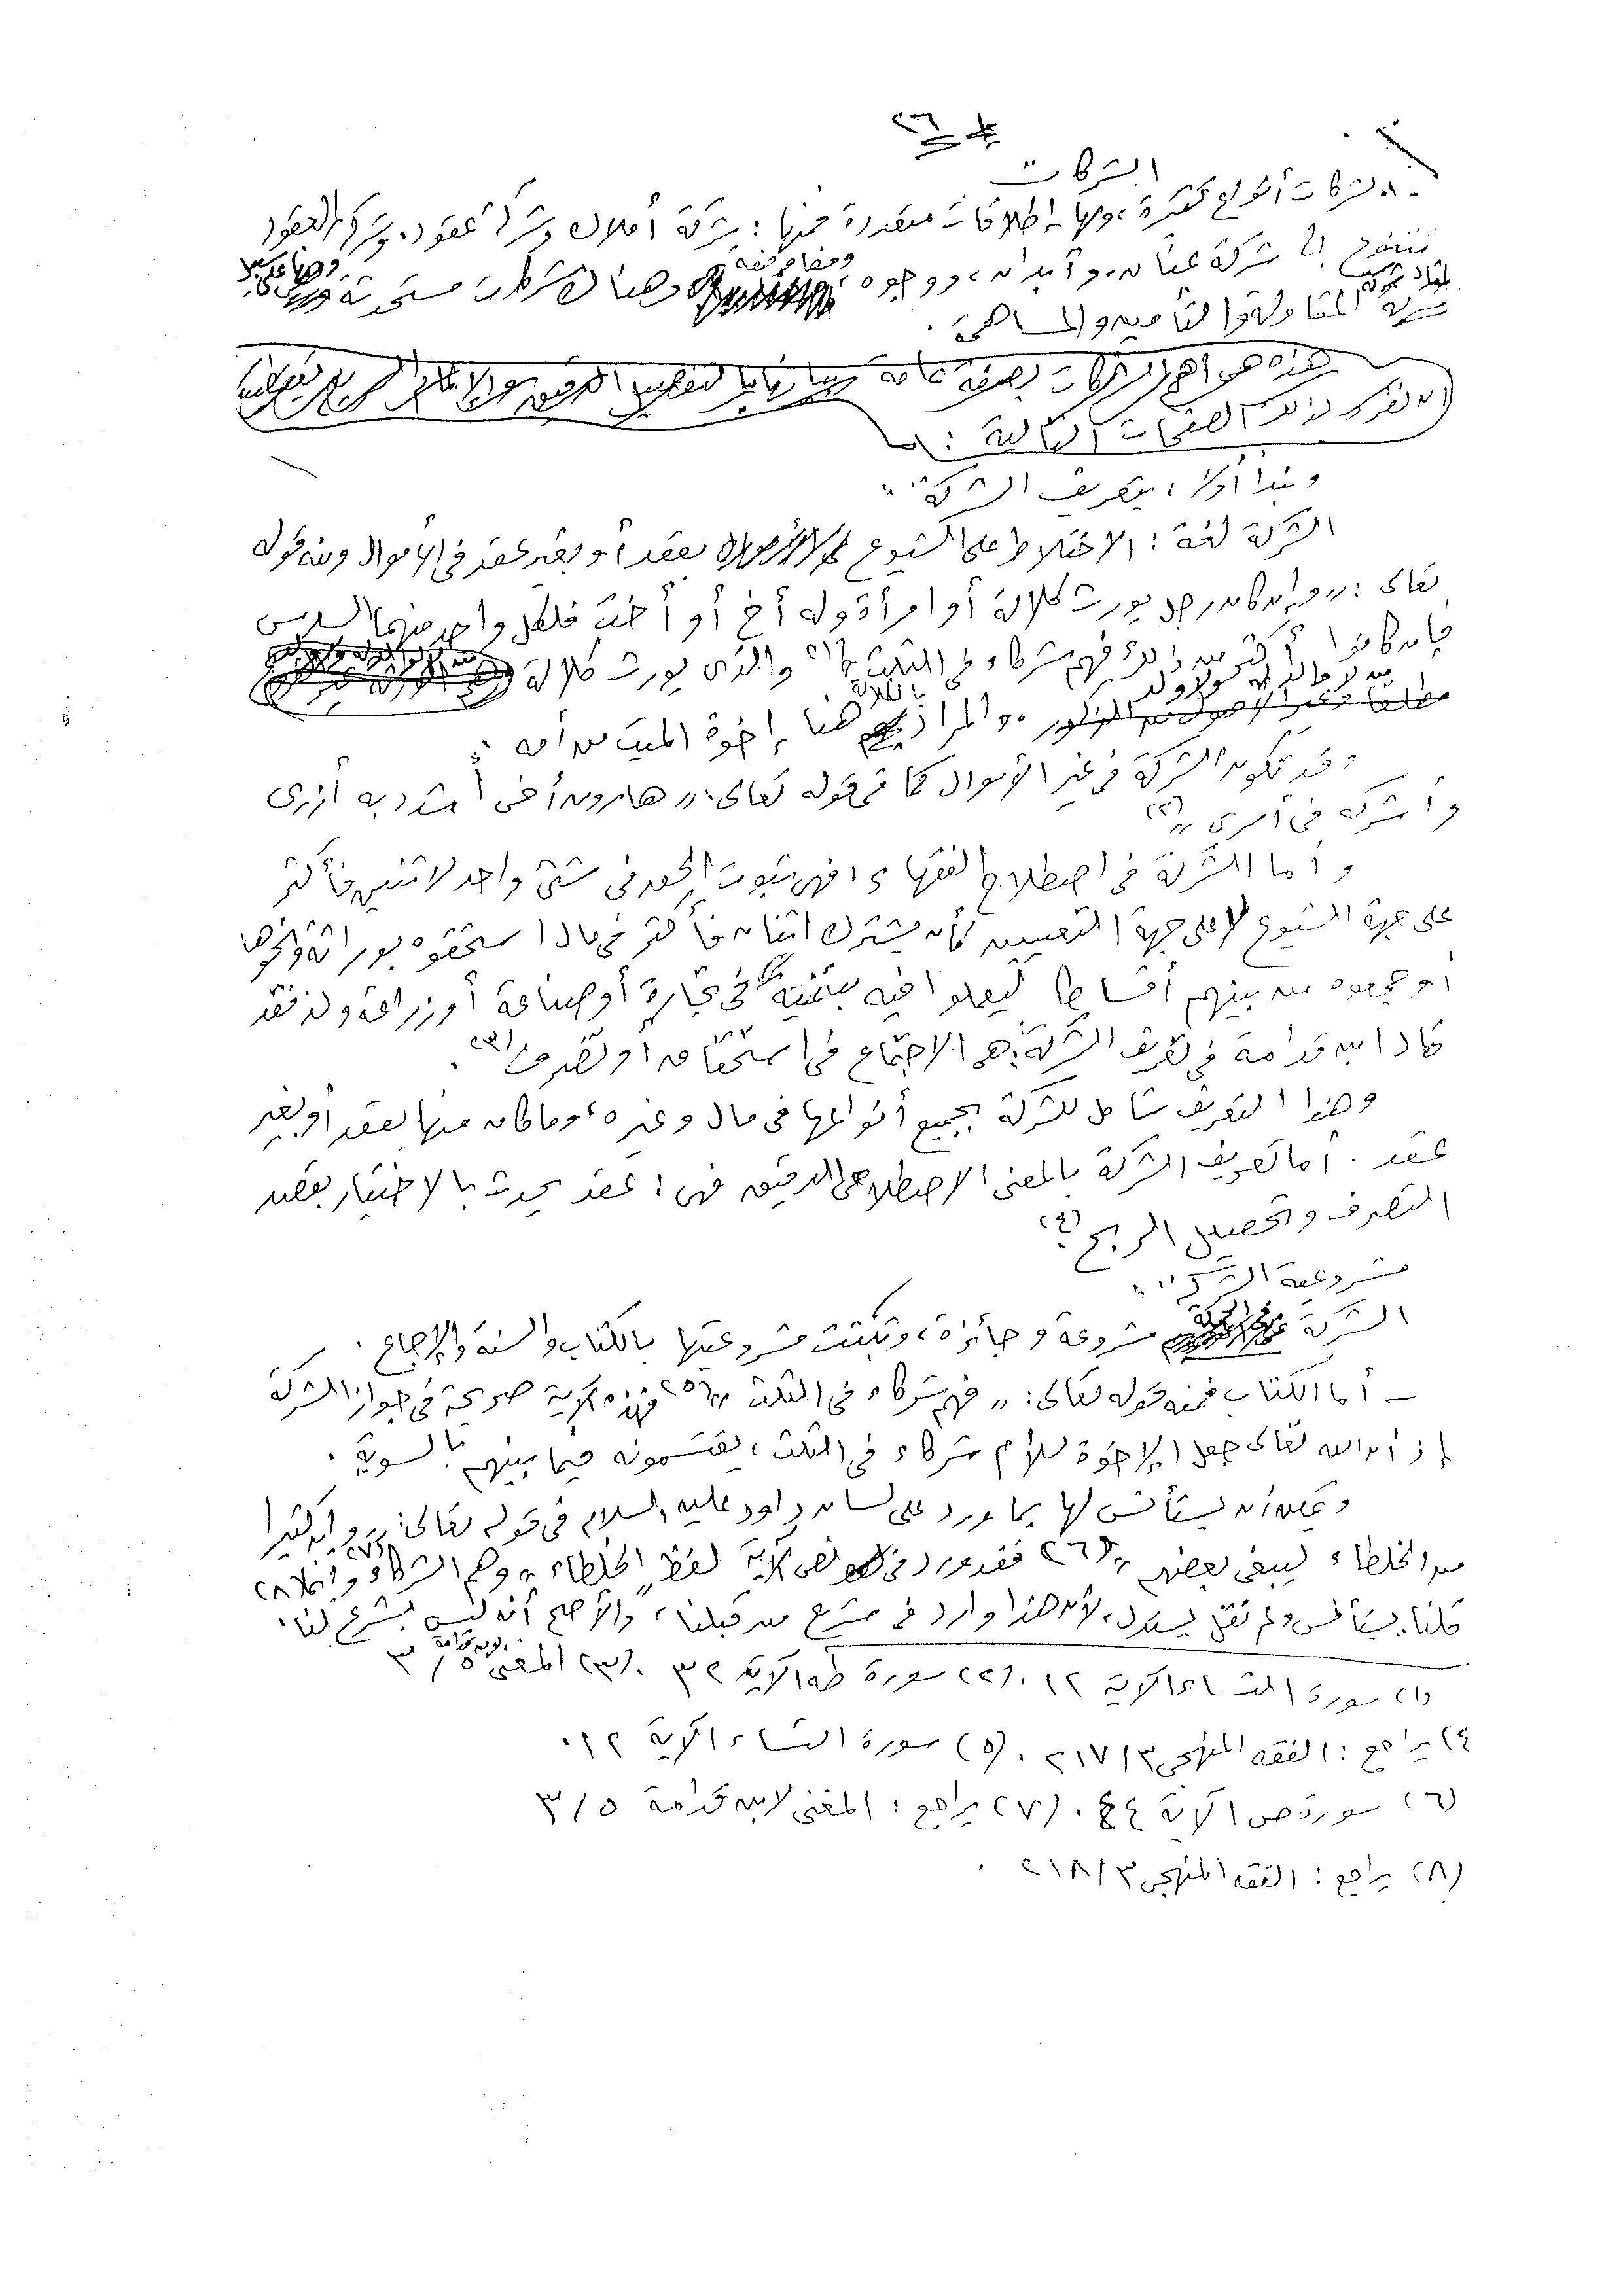 ٢٦
الشركات
- الشركات أنواع كثيرة، ولها إطلاقات متعددة منها: شركة أملاك وشركة عقود، وشركة العقود
تتنوع إلى شركة عنان، وأبدان، ووجوه، ومفاوضة وهناك شركات مستحدثة
شركة المقاولة والتأمين والمساهمة.
هذه هي أهم الشركات بصفة عامة
الصفحات التالية:
ونبدأ أولا: بتعريف الشركة:
الشركة لغة: الاختلاط على الشيوع بعقد أو بغير عقد في الأموال ومنه قوله
تعالى: "وإن كان رجل يورث كلالة أو امرأة وله أخ أو أخت فلكل واحد منهما السدس
فإن كانوا أكثر من ذلك فهم شركاء في الثلث" (١) والذي يورث كلالة
من لا والد له ولا ولد والمراد بالكلالة هنا إخوة الميت من أمه.
وقد تكون الشركة في غير الأموال كما في قوله تعالى: "هارون أخي اشدد به أزري
وأشركه في أمري" (٢)
وأما الشركة في اصطلاح الفقهاء: فهي ثبوت الحق في شيء واحد لاثنين فأكثر
على جهة الشيوع لا على جهة التعيين كأن يشترك اثنان فأكثر في مال استحقوه بوراثة ونحوها
أو جمعوه من بينهم أقساطا ليعملوا فيه بتنميته في تجارة أو صناعة أو زراعة ولذ فقد
قال ابن قدامة في تعريف الشركة: هي الاجتماع في استحقاق أو تصرف (٣).
وهذا التعريف شامل للشركة بجميع أنواعها في مال وغيره، وما كان منها بعقد أو بغير
عقد. أما تعريف الشركة بالمعنى الاصطلاحي الدقيق فهي: عقد يحدث بالاختيار بقصد
التصرف وتحصيل الربح (٤).
مشروعية الشركة:
الشركة مشروعة وجائزة، وثبتت مشروعيتها بالكتاب والسنة والإجماع.
- أما الكتاب فمنه قوله تعالى: "فهم شركاء في الثلث" (٥) فهذه الآية صريحة في جواز الشركة
إذ أن الله تعالى جعل الإخوة للأم شركاء في الثلث، يقتسمونه فيما بينهم بالسوية.
ويمكن أن يستأنس لها بما ورد على لسان داود عليه السلام في قوله تعالى: "وإن كثيرا
من الخلطاء ليبغي بعضهم" (٦) فقد ورد في نص الآية لفظ "الخلطاء" وهم الشركاء (٧) وإنما (٨)
قلنا يستأنس ولم نقل يستدل، لأن هذا وارد في شرع من قبلنا، والأصح أنه ليس بشرع لنا.
(١) سورة النساء الآية ١٢. (٢) سورة طه الآية ٣٢. (٣) المغنى لابن قدامة ٥/٣
(٤) يراجع: الفقه المنهجي ٣/٢١٧. (٥) سورة النساء الآية ١٢.
(٦) سورة ص الآية ٢٤. (٧) يراجع: المغنى لابن قدامة ٥/٣
(٨) يراجع: الفقه المنهجي ٣/٢١٨.